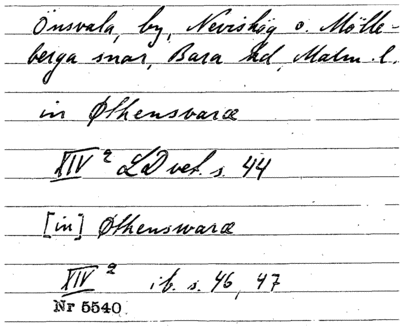 Önsvala, by, Nevishög o. Mölle-
berga snar, Bara hd, Malm. l.
in Øthensvaræ
XIV 2 LD vet. s. 44
[in] Øthenswaræ
XIV 2 ib. s. 46, 47
Nr 5540